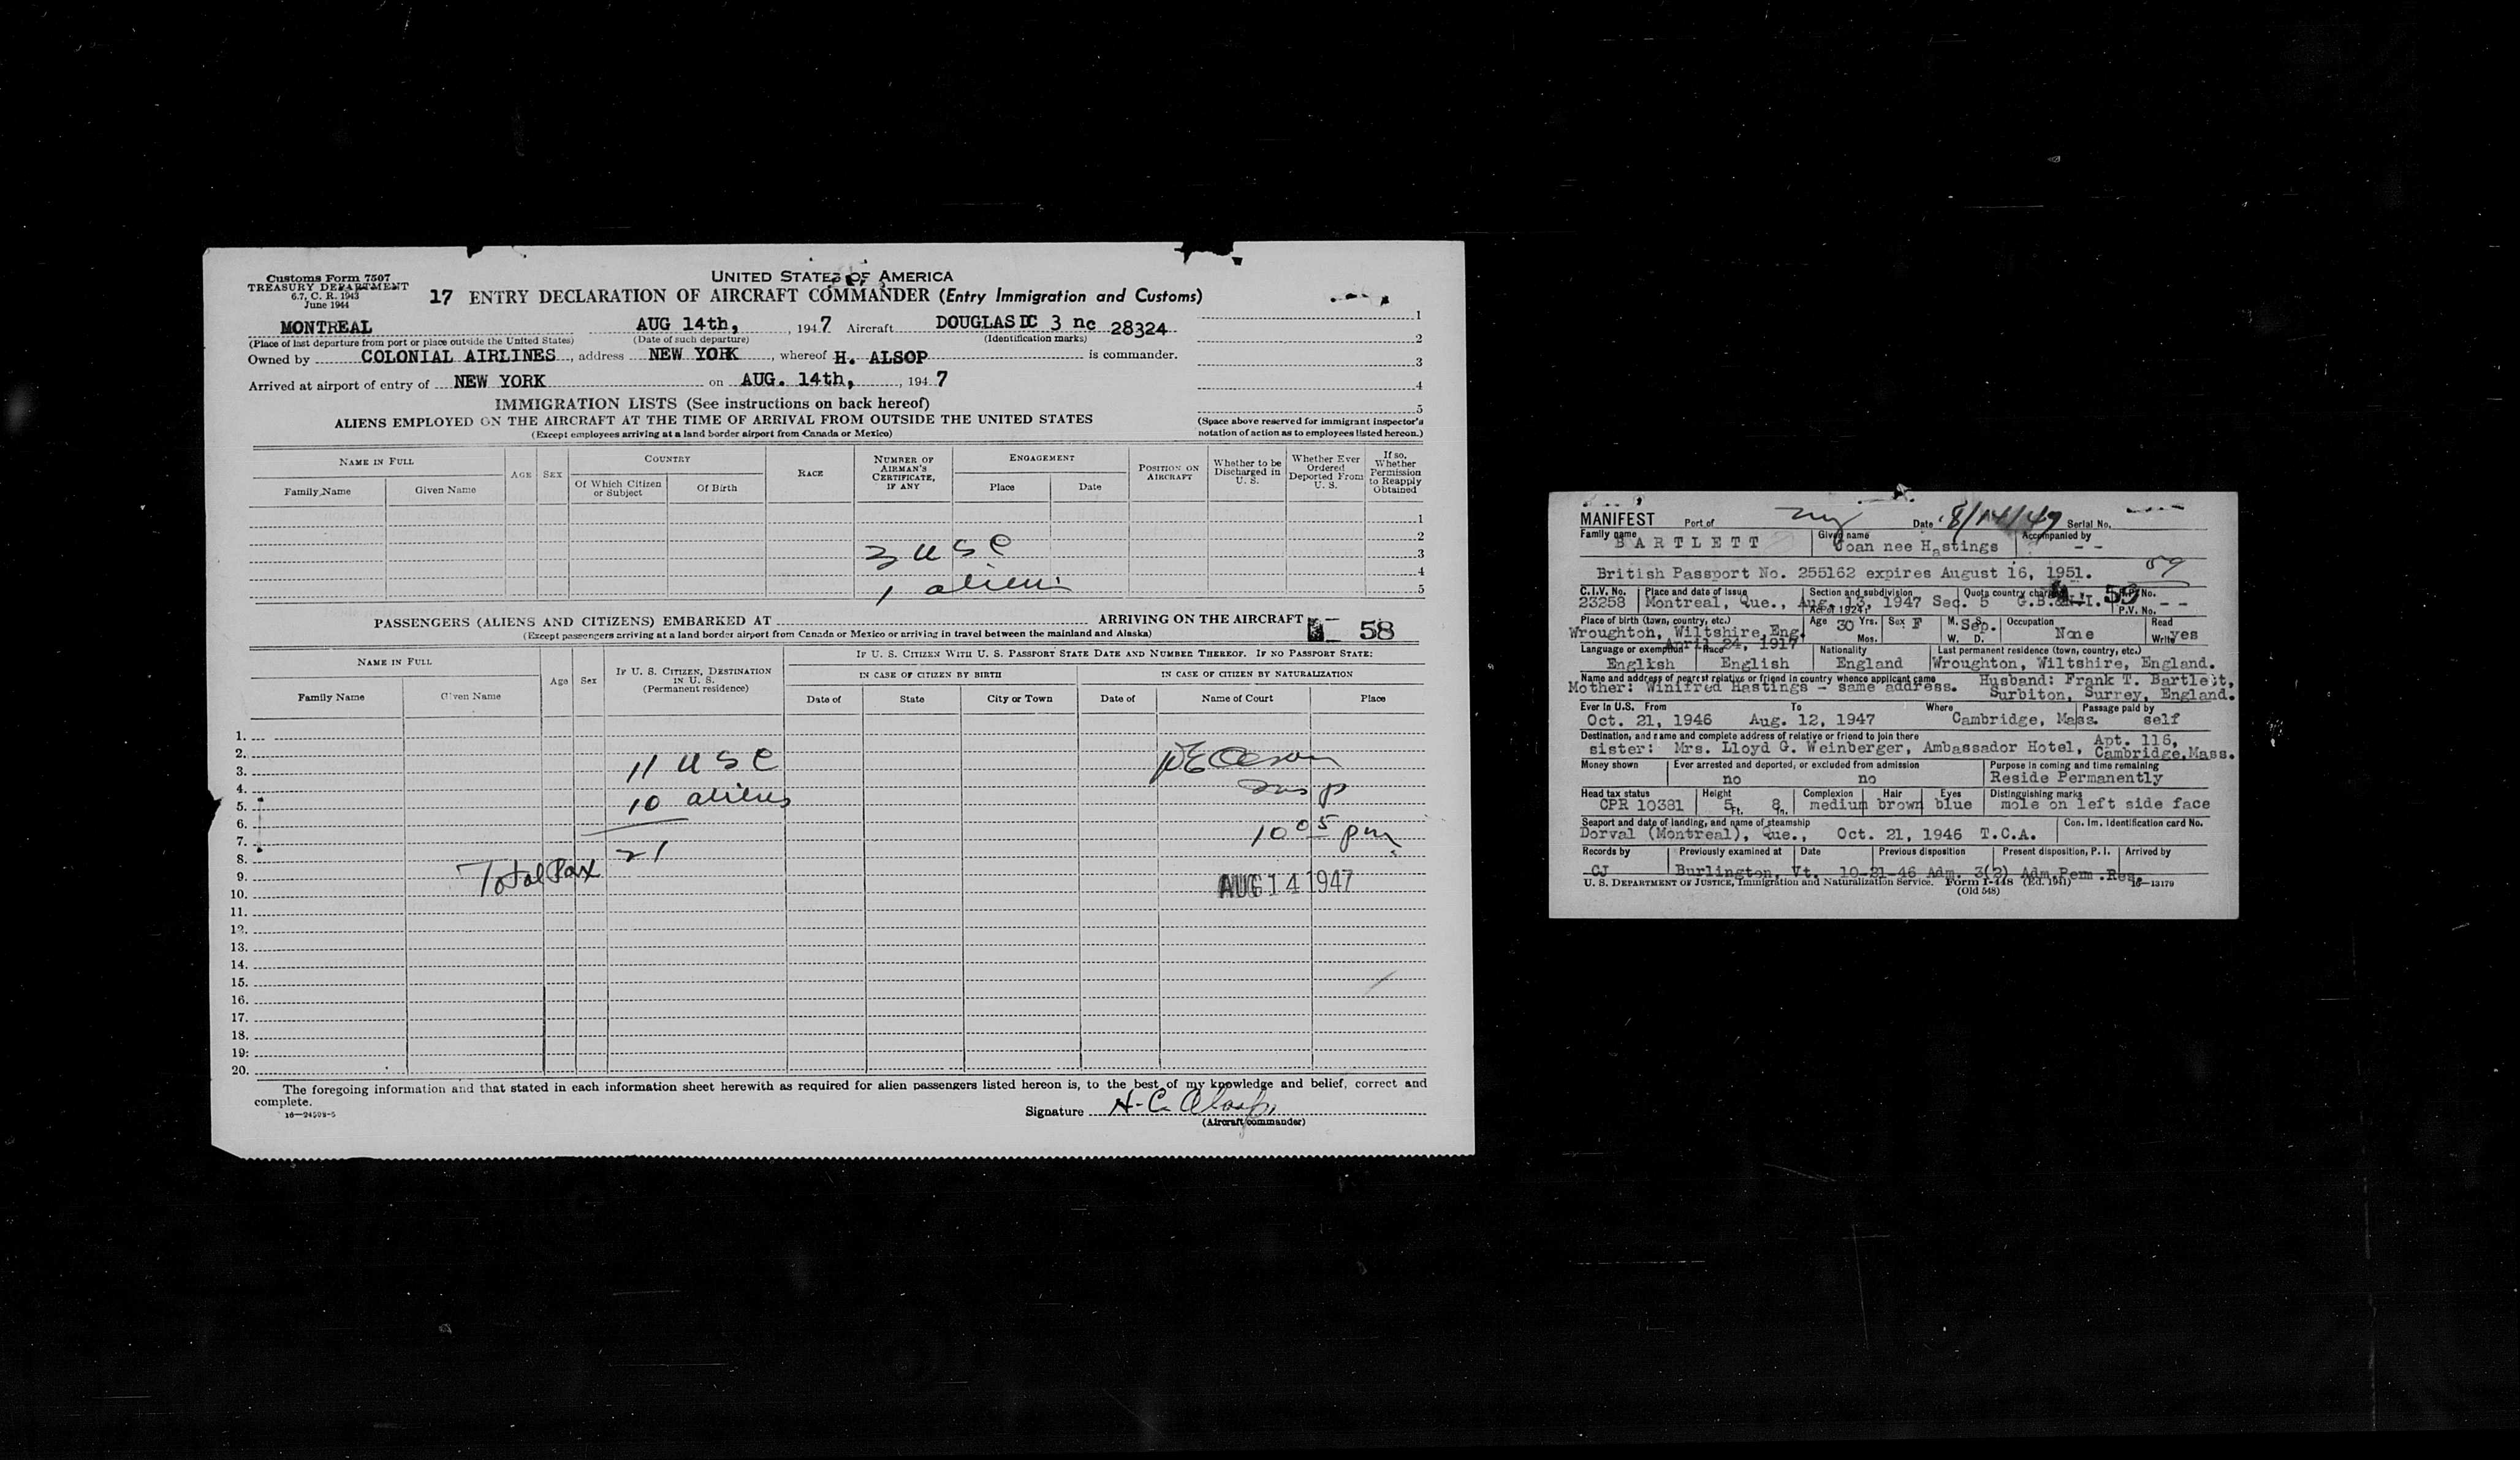 Customs Form 7507
TREASURY DEPARTMENT
6.7, C. R. 1943
June 1944
UNITED STATES OF AMERICA
17 ENTRY DECLARATION OF AIRCRAFT COMMANDER (Entry Immigration and Customs)
MONTREAL AUG 14th, , 1947 Aircraft DOUGLAS DC 3 nc 28324
(Place of last departure from port or place outside the United States) (Date of such departure) (Identification marks)
Owned by COLONIAL AIRLINES, address NEW YORK, whereof H. ALSOP is commander.
Arrived at airport of entry of NEW YORK on AUG. 14th, , 1947
1
2
3
4
5
IMMIGRATION LISTS (See instructions on back hereof)
ALIENS EMPLOYED ON THE AIRCRAFT AT THE TIME OF ARRIVAL FROM OUTSIDE THE UNITED STATES
(Except employees arriving at a land border airport from Canada or Mexico)
(Space above reserved for immigrant inspector's
notation of action as to employees listed hereon.)
NAME IN FULL
Family Name Given Name
AGE SEX
COUNTRY
Of Which Citizen or Subject Of Birth
RACE
NUMBER OF AIRMAN'S CERTIFICATE, IF ANY
ENGAGEMENT
Place Date
POSITION ON AIRCRAFT
Whether to be Discharged in U. S.
Whether Ever Ordered Deported From U. S.
If so, Whether Permission to Reapply Obtained
1
2
3 USC 3
4
1 alien 5
PASSENGERS (ALIENS AND CITIZENS) EMBARKED AT ARRIVING ON THE AIRCRAFT 58
(Except passengers arriving at a land border airport from Canada or Mexico or arriving in travel between the mainland and Alaska)
NAME IN FULL
Family Name Given Name
Age Sex
IF U. S. CITIZEN, DESTINATION IN U. S. (Permanent residence)
IF U. S. CITIZEN WITH U. S. PASSPORT STATE DATE AND NUMBER THEREOF. IF NO PASSPORT STATE:
IN CASE OF CITIZEN BY BIRTH IN CASE OF CITIZEN BY NATURALIZATION
Date of State City or Town Date of Name of Court Place
1.
2.
3. 11 USC
4.
5. 10 aliens
6.
7. 10 05 pm
8. 21
9. Total Pax
10. AUG 14 1947
11.
12.
13.
14.
15.
16.
17.
18.
19.
20.
The foregoing information and that stated in each information sheet herewith as required for alien passengers listed hereon is, to the best of my knowledge and belief, correct and
complete.
16—24598-5
Signature H. C. Alsop
(Aircraft commander)
MANIFEST Port of NY Date 8/14/47 Serial No.
Family name BARTLETT Given name Joan nee Hastings Accompanied by - -
British Passport No. 255162 expires August 16, 1951. 59
C.I.V. No. Place and date of issue Section and subdivision Act of 1924: Quota country charged R.P. No.
23258 Montreal, Que., Aug. 13, 1947 Sec. 5 G.B.&N.I. 59 P.V. No. - -
Place of birth (town, country, etc.) Age 30 Yrs. Mos. Sex F M. S. W. D. Sep. Occupation None Read Write yes
Wroughton, Wiltshire, Eng.
April 24, 1917
Language or exemption Race Nationality Last permanent residence (town, country, etc.)
English English England Wroughton, Wiltshire, England.
Name and address of nearest relative or friend in country whence applicant came Husband: Frank T. Bartlett,
Mother: Winifred Hastings - same address. Surbiton, Surrey, England.
Ever in U.S. From To Where Passage paid by
Oct. 21, 1946 Aug. 12, 1947 Cambridge, Mass. self
Destination, and name and complete address of relative or friend to join there
sister: Mrs. Lloyd G. Weinberger, Ambassador Hotel, Apt. 116, Cambridge, Mass.
Money shown Ever arrested and deported, or excluded from admission Purpose in coming and time remaining
no no Reside Permanently
Head tax status Height Complexion Hair Eyes Distinguishing marks
CPR 10381 5 Ft. 8 In. medium brown blue mole on left side face
Seaport and date of landing, and name of steamship Con. Im. Identification card No.
Dorval (Montreal), Que., Oct. 21, 1946 T.C.A.
Records by Previously examined at Date Previous disposition Present disposition, P. I. Arrived by
CJ Burlington, Vt. 10-21-46 Adm. 3(2) Adm Perm .Res.
U. S. DEPARTMENT OF JUSTICE, Immigration and Naturalization Service. Form I-448 (Ed. 1941) 16—13179
(Old 548)